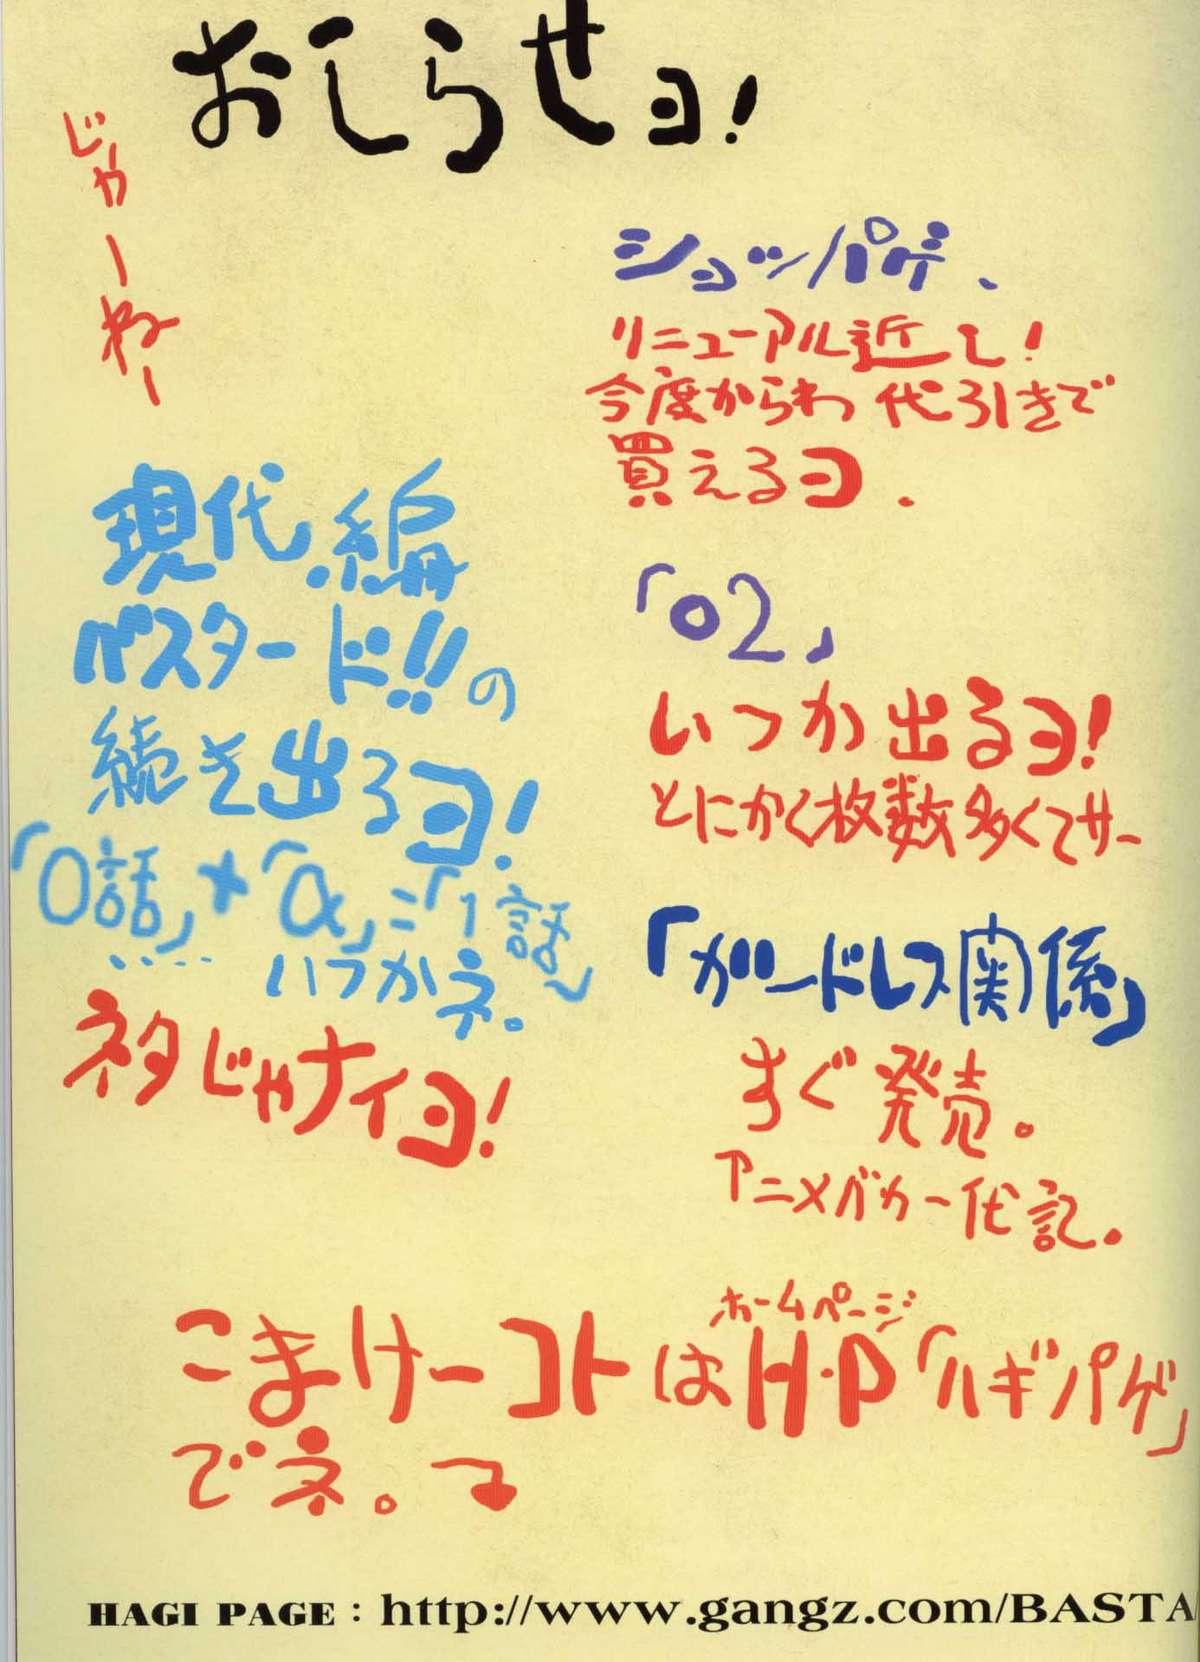 おしらせヨ！
ショッパゲ、
リニューアル近し！
今度からわ代引きで
買えるヨ、
「02」
いつか出るヨ！
とにかく枚数多くてサー
「ガードレス関係」
すぐ発売。
アニメバカ一代記。
じゃーねー
現代編
バスタード!!の
続き出るヨ！
「0話」+「α」=「1話」
‥‥いつかネ。
ネタじゃナイヨ！
ホームページ
こまけーコトはH・P「ハギパゲ」
でネ。
HAGI PAGE : http://www.gangz.com/BASTA